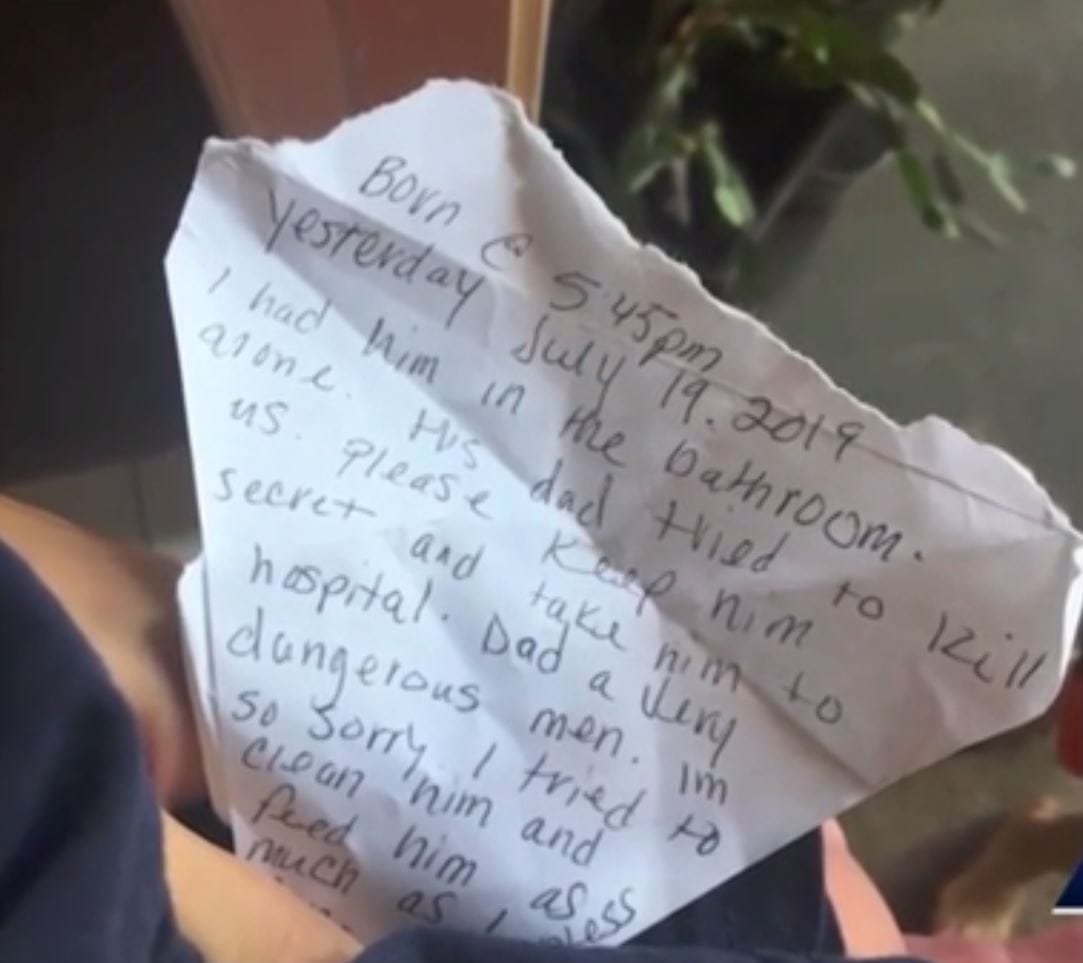 Born @ 5:45pm
Yesterday July 19. 2019
I had him in the bathroom.
alone. His dad tried to kill
us. please keep him
secret and take him to
hospital. Dad a very
dangerous men. Im
so sorry. I tried to
clean him and
feed him as
much as I